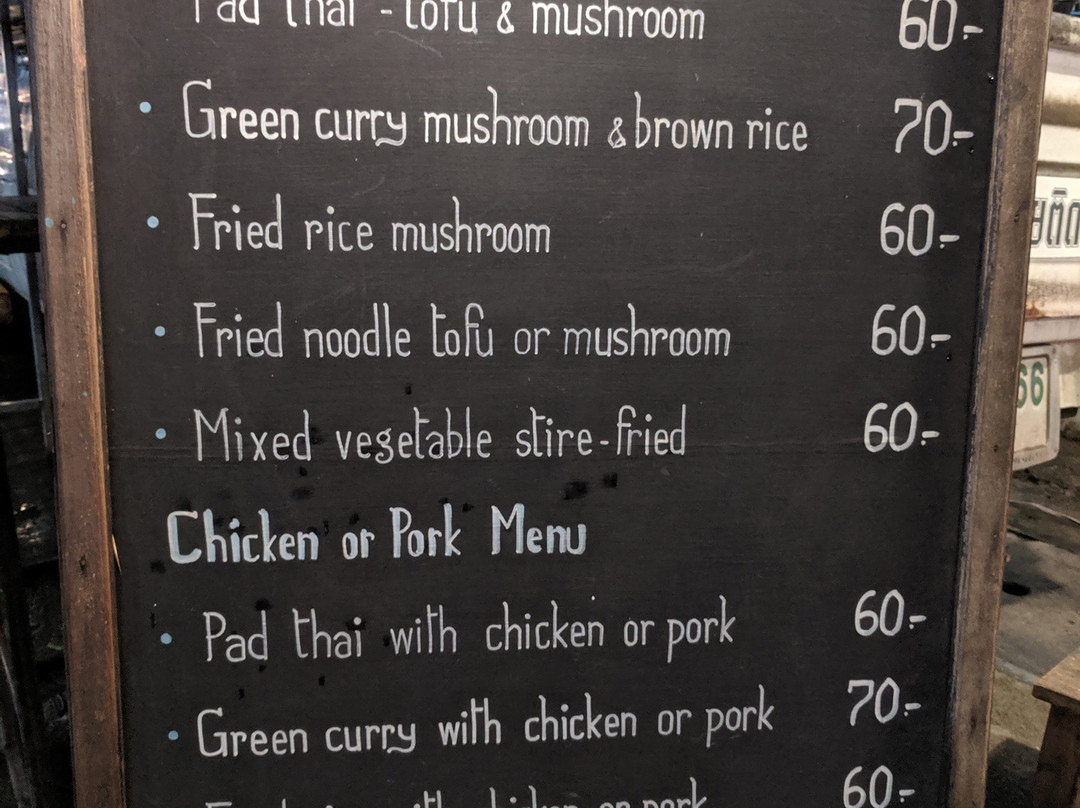 Pad thai - tofu & mushroom 60.-
• Green curry mushroom & brown rice 70.-
• Fried rice mushroom 60.-
• Fried noodle tofu or mushroom 60.-
• Mixed vegetable stire-fried 60.-
Chicken or Pork Menu
• Pad thai with chicken or pork 60.-
• Green curry with chicken or pork 70.-
with chicken or pork 60.-
66